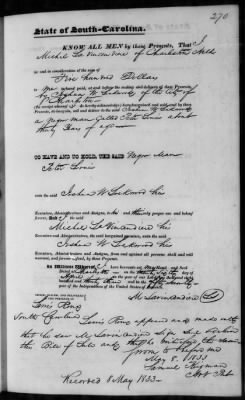 270
State of South-Carolina.
KNOW ALL MEN by these Presents, That I
Michel La Vincendiere of Charleston Neck
for and in consideration of the sum of
Five hundred Dollars
to me in hand paid, at and before the sealing and delivery of these Presents,
by Joshua W. Lockwood of the City of
Charleston
(the receipt whereof I do hereby acknowledge) have bargained and sold, and by these
Presents, do bargain, sell and deliver to the said Joshua W. Lockwood
a Negro man called Peter Louis about
thirty Years of age
TO HAVE AND TO HOLD, THE SAID Negro Man
Peter Louis
unto the said Joshua W Lockwood his
Executors, Administrators and Assigns, to his and their only proper use and behoof
forever. And I the said
Michel La Vincendiere my
Executors, Administrators and Assigns, the said bargained premises, unto the said
Joshua W Lockwood his
Executors, Administrators and Assigns, from and against all persons, shall and will
warrant, and forever defend, by these Presents.
In Witness Whereof, I have hereunto set my Hand and Seal
Dated at Charleston on the day of
in the year of our Lord one thousand eight
hundred and thirty and in the fifty seventh
year of the Independence of the United States of America.
SIGNED, SEALED, AND DELIVERED
IN THE PRESENCE OF
M Lavincendiere
Louis
South Carolina Louis appeared and made oath
that he saw M Lavincendiere sign seal deliver
the Bill of Sale and that he witnessed the same
Sworn to before me
May 8. 1833
Samuel
Not Pub
Recorded 8 May 1833